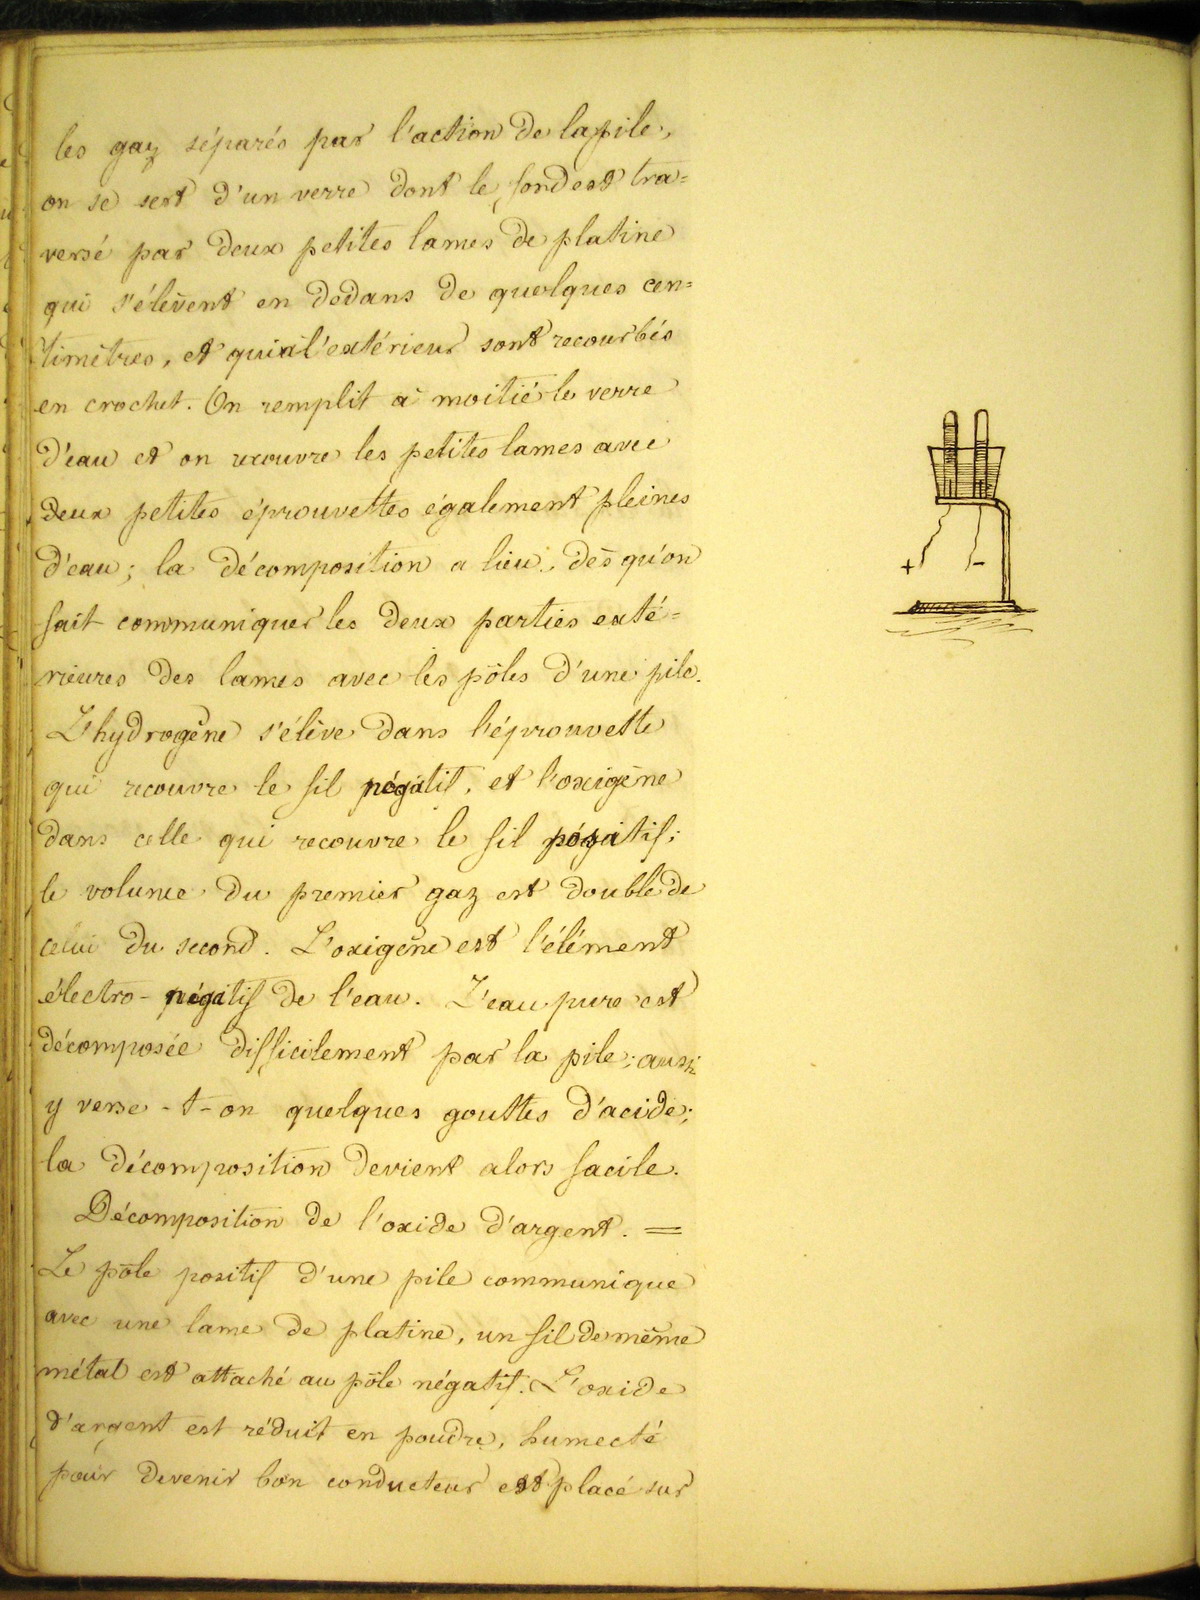 les gaz séparés par l'action de la pile,
on se sert d'un verre dont le fond est tra=
versé par deux petites lames de platine
qui s'élèvent en dedans de quelques cen=
timètres, et qui à l'extérieur sont recourbés
en crochet. On remplit à moitié le verre
d'eau et on recouvre les petites lames avec
deux petites éprouvettes également pleines
d'eau; la décomposition a lieu, dès qu'on
fait communiquer les deux parties exté=
rieures des lames avec les pôles d'une pile.
L'hydrogène s'élève dans l'éprouvette
qui recouvre le fil négatif, et l'oxigène
dans celle qui recouvre le fil positif;
le volume du premier gaz est double de
celui du second. L'oxigène est l'élément
électro-négatif de l'eau. L'eau pure est
décomposée difficilement par la pile; aussi
y verse-t-on quelques gouttes d'acide;
la décomposition devient alors facile.
Décomposition de l'oxide d'argent. =
Le pôle positif d'une pile communique
avec une lame de platine, un fil de même
métal est attaché au pôle négatif. L'oxide
d'argent est réduit en poudre, humecté
pour devenir bon conducteur est placé sur
+ -